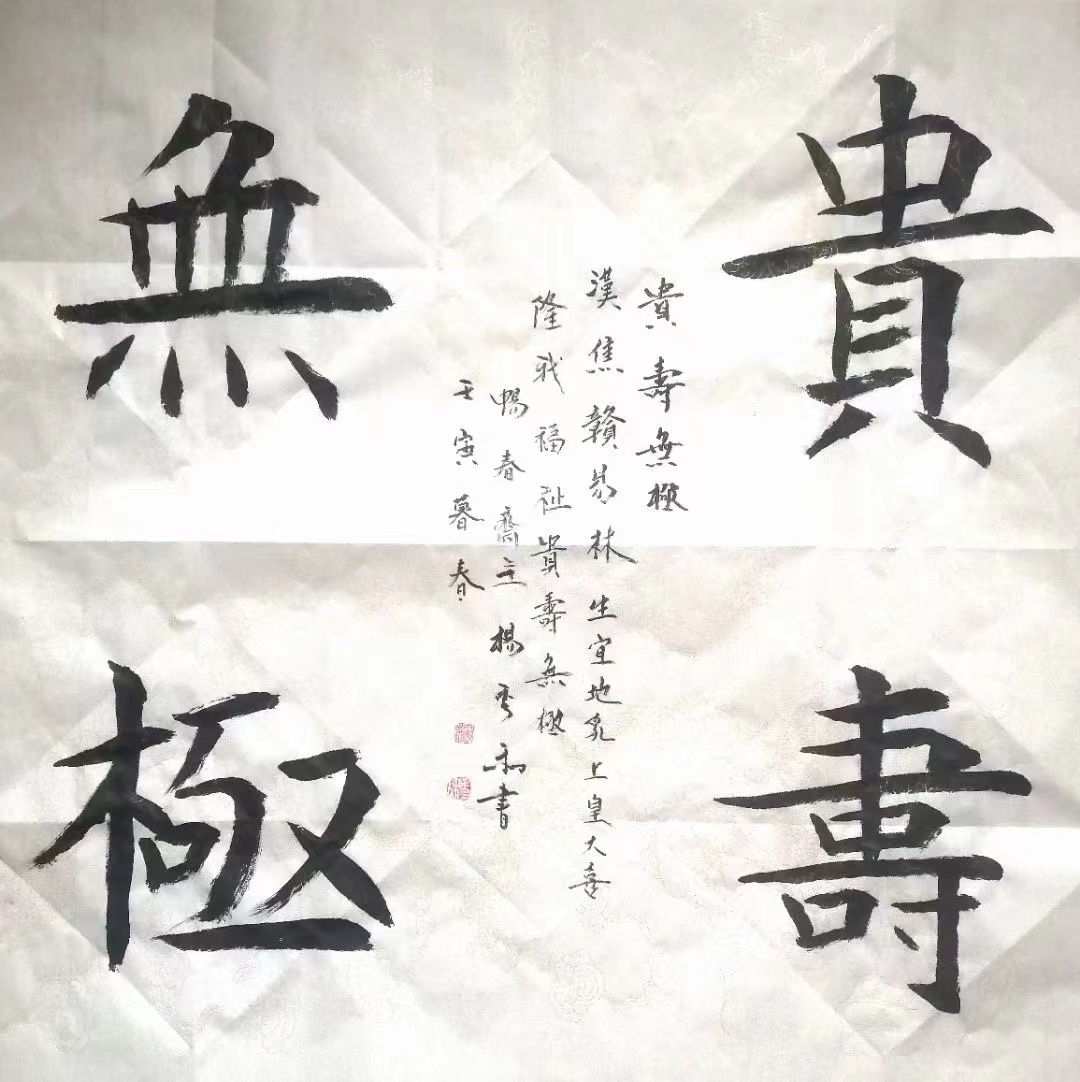 貴壽
無極
貴壽無極
漢焦贛易林生宜地乳上皇大喜
隆我福祉貴壽無極
暢春齋主楊秀和書
壬寅暮春